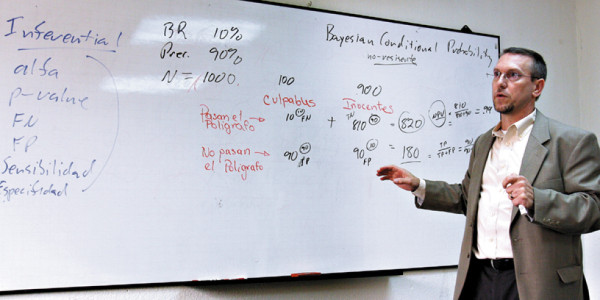 Inferential
alfa
p-value
FN
FP
Sensibilidad
Especifidad
BR 10%
Prec. 90%
N = 1000
Bayesian Conditional Probability
100
900
Culpables
Inocentes
Pasan el
Polígrafo →
10 FN
+
TN
810
= 820
NPV
= 810
= .98
No pasan →
el Polígrafo
90
90
FP
= 180
= TP
TP+FP
= 90